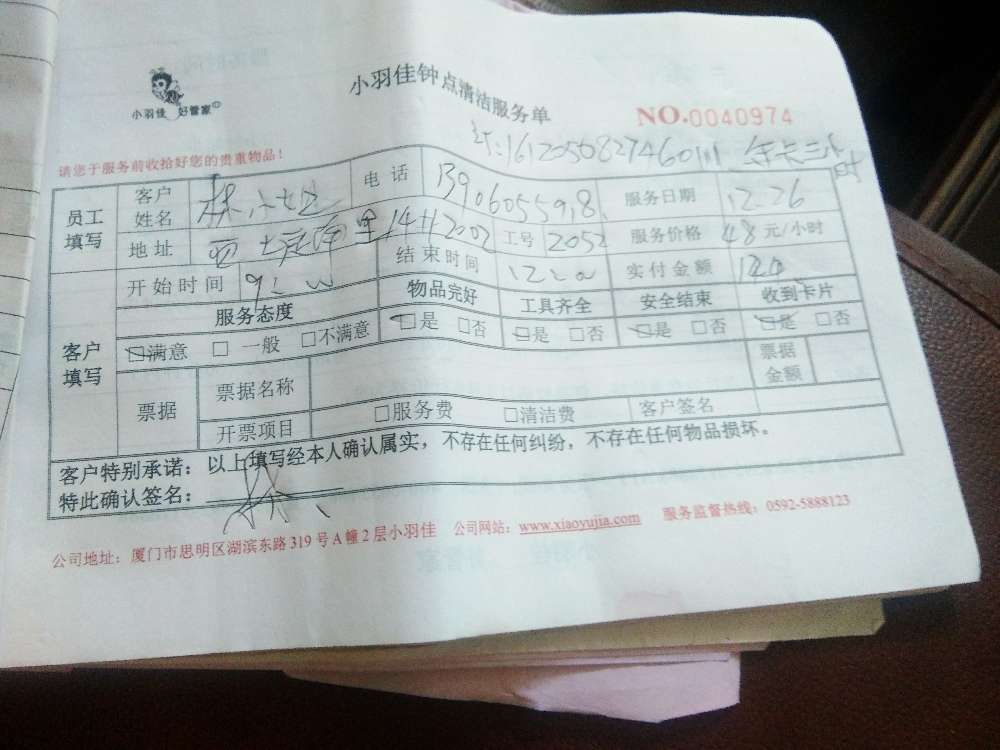 小羽佳 好管家
小羽佳钟点清洁服务单
NO.0040974
请您于服务前收拾好您的贵重物品!
员工填写
客户姓名 林小姐 电话 服务日期 12.26
地址 工号 2052 服务价格 48元/小时
开始时间 9:00 结束时间 12:00 实付金额
客户填写
服务态度 物品完好 工具齐全 安全结束 收到卡片
☑满意 □一般 □不满意 ☑是 □否 ☑是 □否 ☑是 □否 ☑是 □否
票据 票据名称 票据金额
开票项目 □服务费 □清洁费 客户签名
客户特别承诺:以上填写经本人确认属实,不存在任何纠纷,不存在任何物品损坏。
特此确认签名:林
公司地址:厦门市思明区湖滨东路319号A幢2层小羽佳 公司网站:www.xiaoyujia.com 服务监督热线:0592-5888123